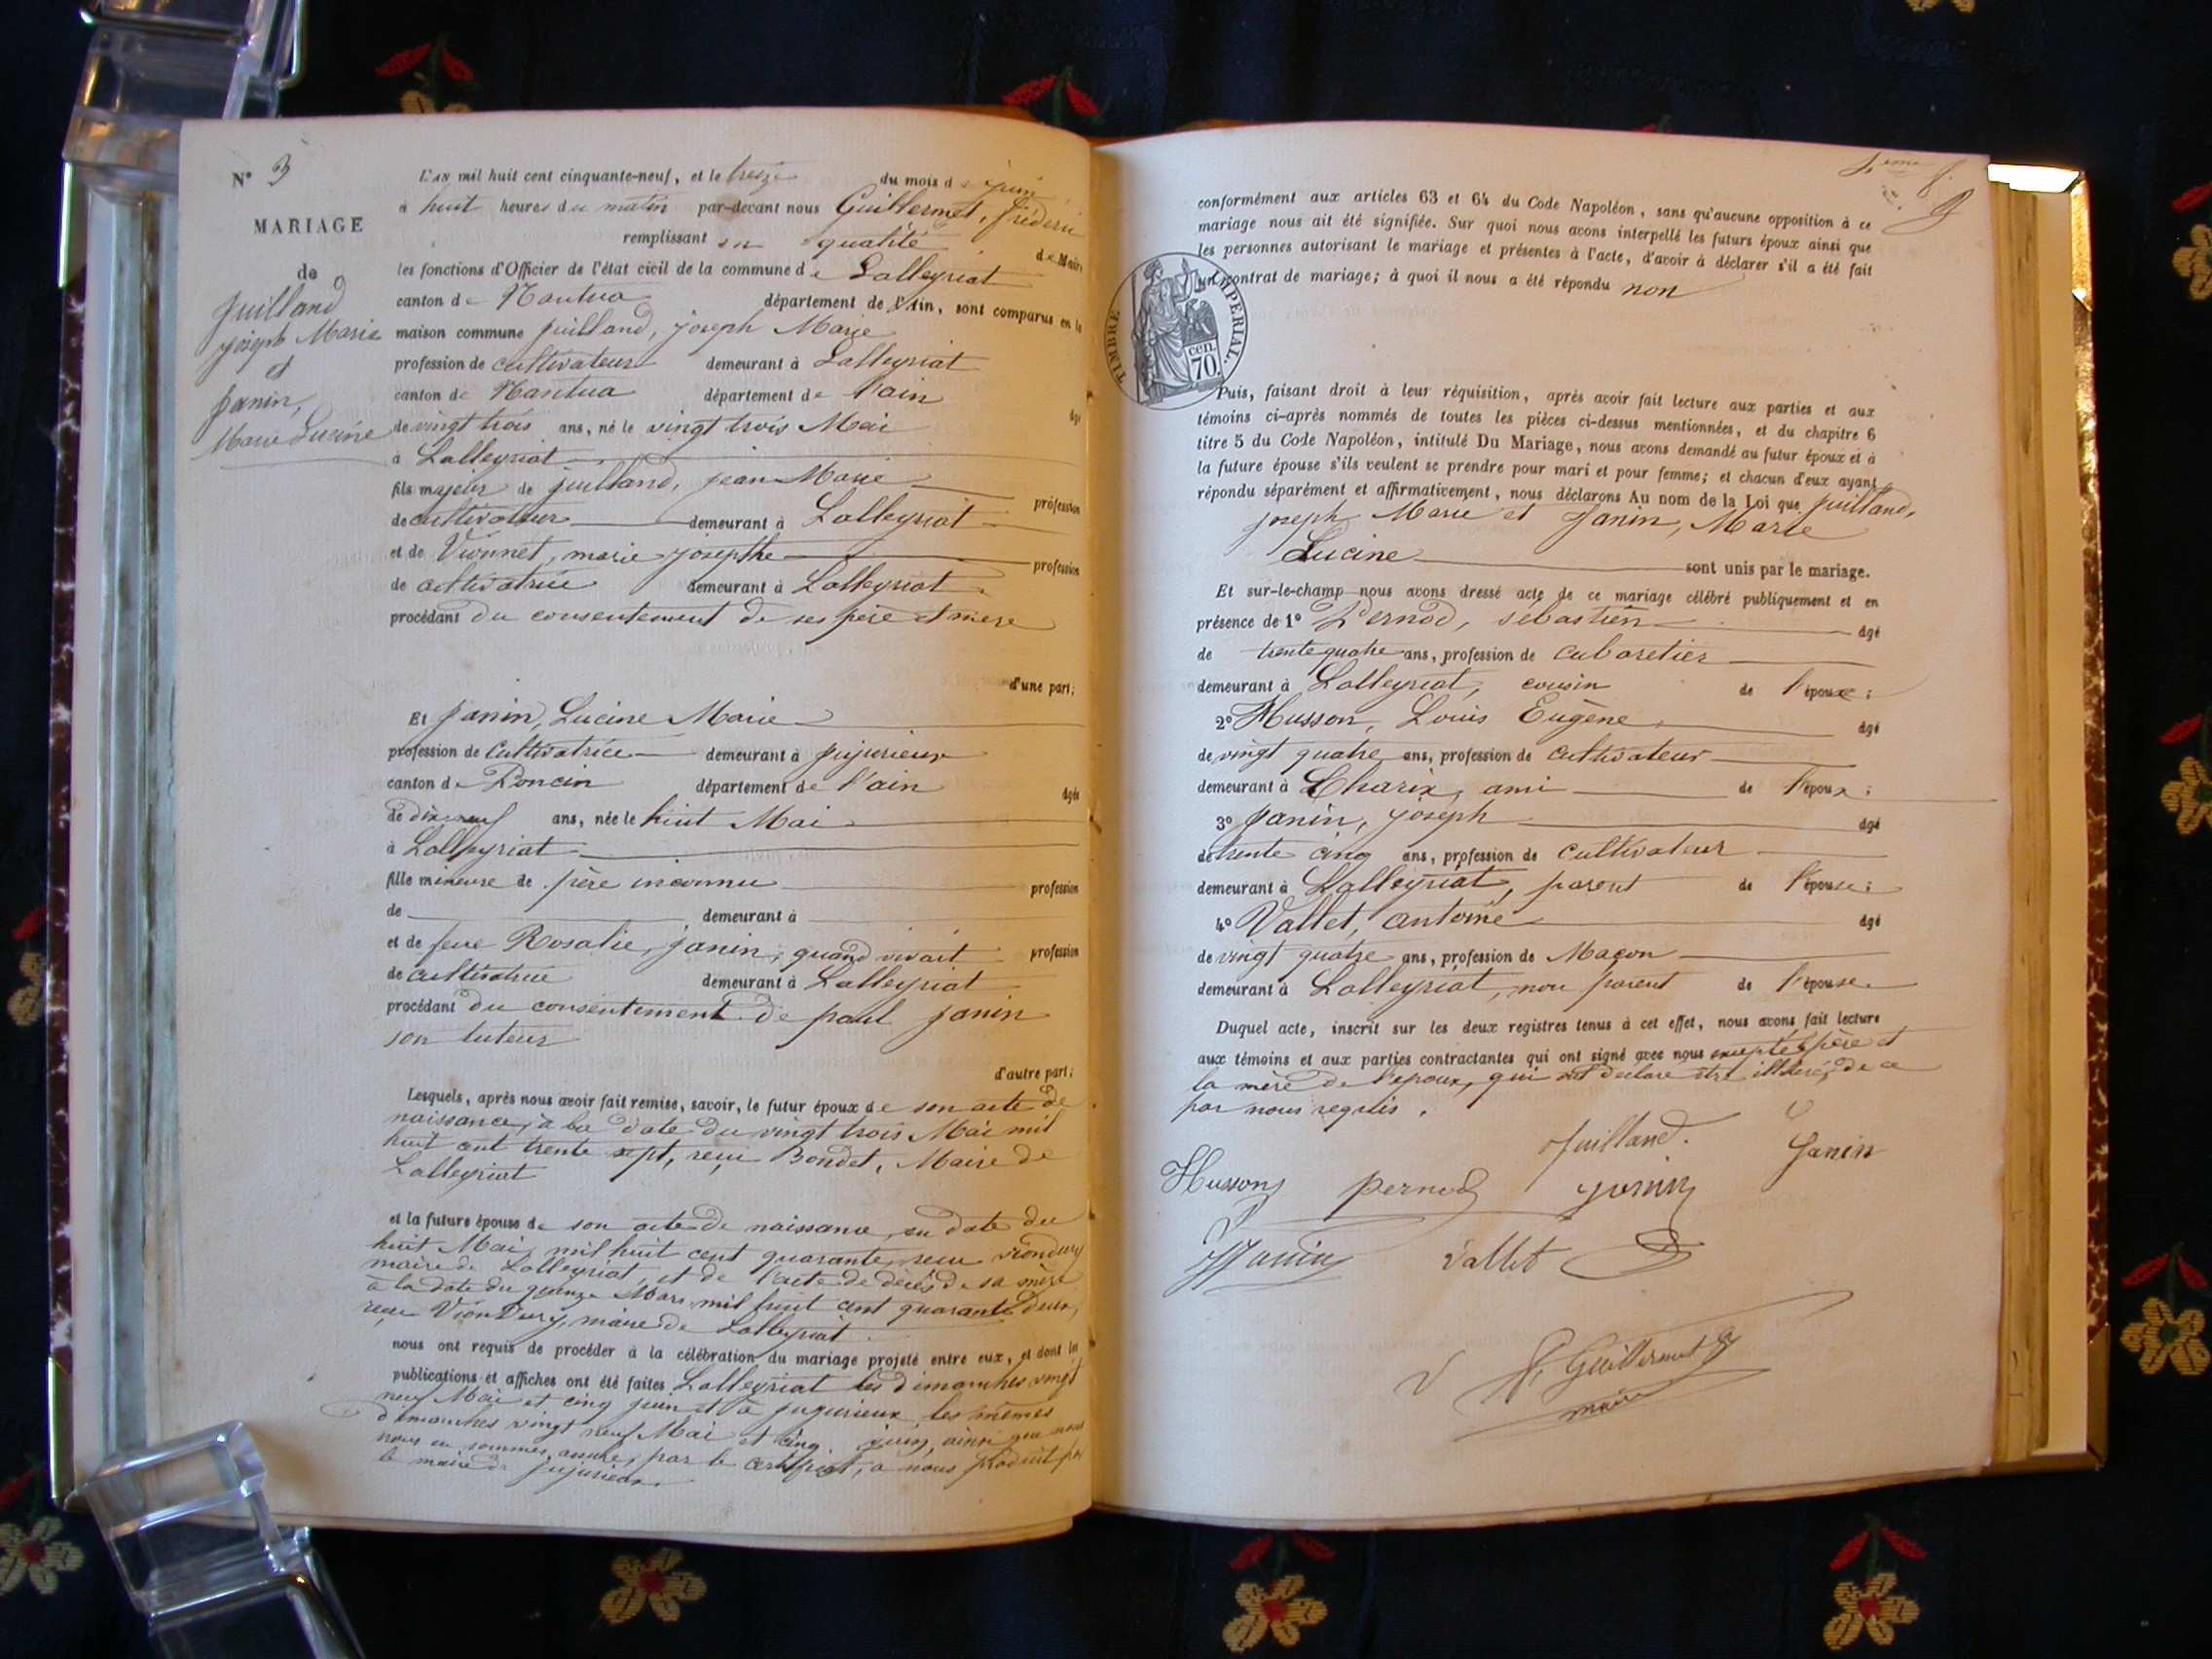 N° 3
MARIAGE
de
Juilland
joseph Marie
et
Janin,
Marie Lucine
L'an mil huit cent cinquante-neuf, et le treize du mois de juin
à huit heures du matin par-devant nous Guillermet, frédéric
remplissant en qualité de Maire
les fonctions d'Officier de l'état civil de la commune de Lalleyriat
canton de Nantua département de l'Ain, sont comparus en la
maison commune juilland, joseph Marie
profession de cultivateur demeurant à Lalleyriat
canton de Nantua département de l'ain âgé
de vingt trois ans, né le vingt trois Mai
à Lalleyriat
fils majeur de juilland, jean Marie profession
de cultivateur demeurant à Lalleyriat
et de Vionnet, marie josephte profession
de cultivatrice demeurant à Lalleyriat
procédant du consentement de ses père et mère
d'une part;
Et Janin, Lucine Marie
profession de cultivatrice demeurant à jujurieux
canton de Poncin département de l'ain âgée
de dix neuf ans, née le huit Mai
à Lalleyriat
fille mineure de père inconnu profession
de demeurant à
et de feue Rosalie, janin, quand vivait profession
de cultivatrice demeurant à Lalleyriat
procédant du consentement de paul janin
son tuteur
d'autre part;
Lesquels, après nous avoir fait remise, savoir, le futur époux de son acte de
naissance, à la date du vingt trois Mai mil
huit cent trente sept, reçu Bondet, Maire de
Lalleyriat
et la future épouse de son acte de naissance, en date du
huit Mai, mil huit cent quarante, reçu viondury
maire de Lalleyriat, et de l'acte de décès de sa mère
à la date du quinze Mars mil huit cent quarante deux,
reçu Viondury, maire de Lalleyriat
nous ont requis de procéder à la célébration du mariage projeté entre eux, et dont les
publications et affiches ont été faites Lalleyriat les dimanches vingt
neuf Mai et cinq juin et à jujurieux les mêmes
dimanches vingt neuf Mai et cinq juin, ainsi que nous
nous en sommes assuré, par le certificat, à nous produit par
le maire de jujurieux.
4eme f.
conformément aux articles 63 et 64 du Code Napoléon, sans qu'aucune opposition à ce
mariage nous ait été signifiée. Sur quoi nous avons interpellé les futurs époux ainsi que
les personnes autorisant le mariage et présentes à l'acte, d'avoir à déclarer s'il a été fait
un contrat de mariage; à quoi il nous a été répondu non
TIMBRE IMPERIAL.
cen.
70.
Puis, faisant droit à leur réquisition, après avoir fait lecture aux parties et aux
témoins ci-après nommés de toutes les pièces ci-dessus mentionnées, et du chapitre 6
titre 5 du Code Napoléon, intitulé Du Mariage, nous avons demandé au futur époux et à
la future épouse s'ils veulent se prendre pour mari et pour femme; et chacun d'eux ayant
répondu séparément et affirmativement, nous déclarons Au nom de la Loi que juilland,
joseph Marie et Janin, Marie
Lucine sont unis par le mariage.
Et sur-le-champ nous avons dressé acte de ce mariage célébré publiquement et en
présence de 1° Pernod, sébastien âgé
de trente quatre ans, profession de cabaretier
demeurant à Lalleyriat, cousin de l'époux;
2° Husson, Louis Eugène âgé
de vingt quatre ans, profession de cultivateur
demeurant à Charix, ami de l'époux;
3° Janin, joseph âgé
de trente cinq ans, profession de cultivateur
demeurant à Lalleyriat, parent de l'épouse;
4° Vallet, antoine âgé
de vingt quatre ans, profession de Maçon
demeurant à Lalleyriat, non parent de l'épouse.
Duquel acte, inscrit sur les deux registres tenus à cet effet, nous avons fait lecture
aux témoins et aux parties contractantes qui ont signé avec nous excepté père et
la mère de l'epoux, qui ont déclaré être illitéré, de ce
par nous requis.
Juilland. Janin
Husson Pernod janin
Janin Vallet
F, Guillermet
maire